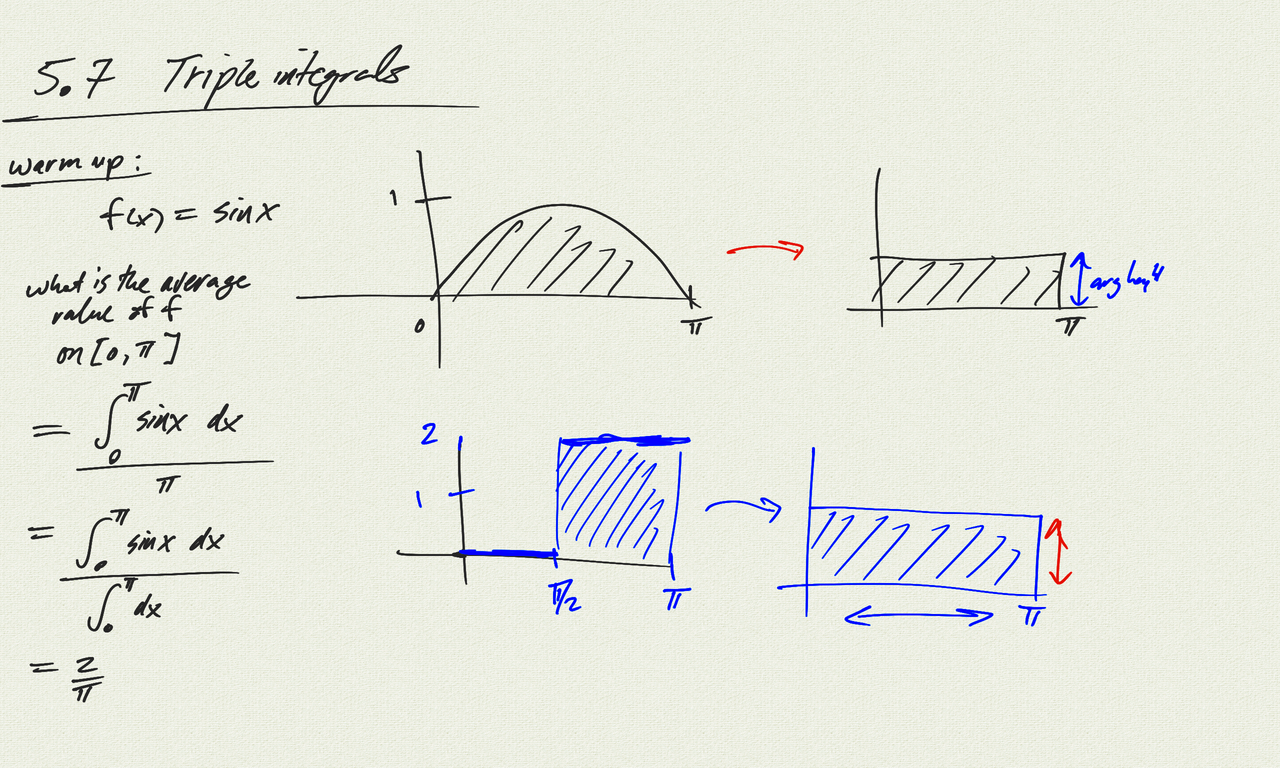 5.7 Triple integrals
warm up:
f(x) = sin x
what is the average
value of f
on [0, π]
= ∫₀^π sin x dx
π
= ∫₀^π sin x dx
∫₀^π dx
= 2/π
1
0
π
avg
π
2
1
π/2
π
π